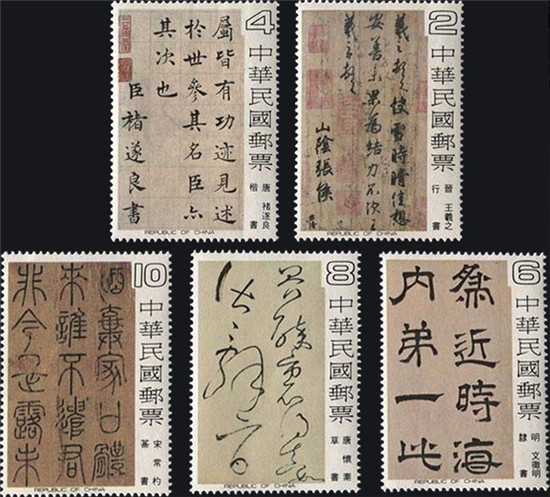 4
中華民國郵票
唐 褚遂良
楷書
屬皆有功迹見述
於世參其名臣亦
其次也
臣褚遂良書
REPUBLIC OF CHINA
2
中華民國郵票
晉 王羲之
行書
羲之頓首快雪時晴佳想
安善未果為結力不次王
羲之頓首
山陰張侯
REPUBLIC OF CHINA
10
中華民國郵票
宋 常杓
篆書
棄家口體
未雖不遣君
非今是露未
8
中華民國郵票
唐 懷素
草書
6
中華民國郵票
明 文徵明
隸書
近時海
内弟一此
REPUBLIC OF CHINA